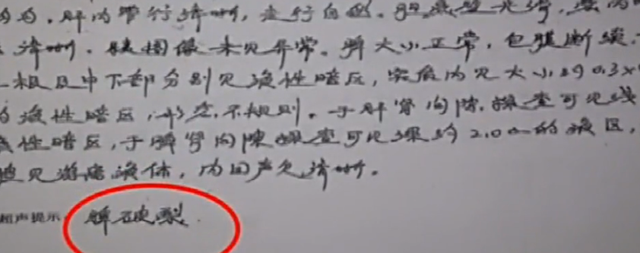 均匀，肝内管行清晰，走行自然。胆囊壁光滑，
清晰。胰图像未见异常。脾大小正常，包膜断续
极及中下部分别见液性暗区，实质内见大小约0.3×
的液性暗区，形态不规则。于肝肾间隙探查可见线
性暗区，于脾肾间隙探查可见深约2.0cm的液区，
见游离液体，内回声欠清晰。
超声提示 脾破裂